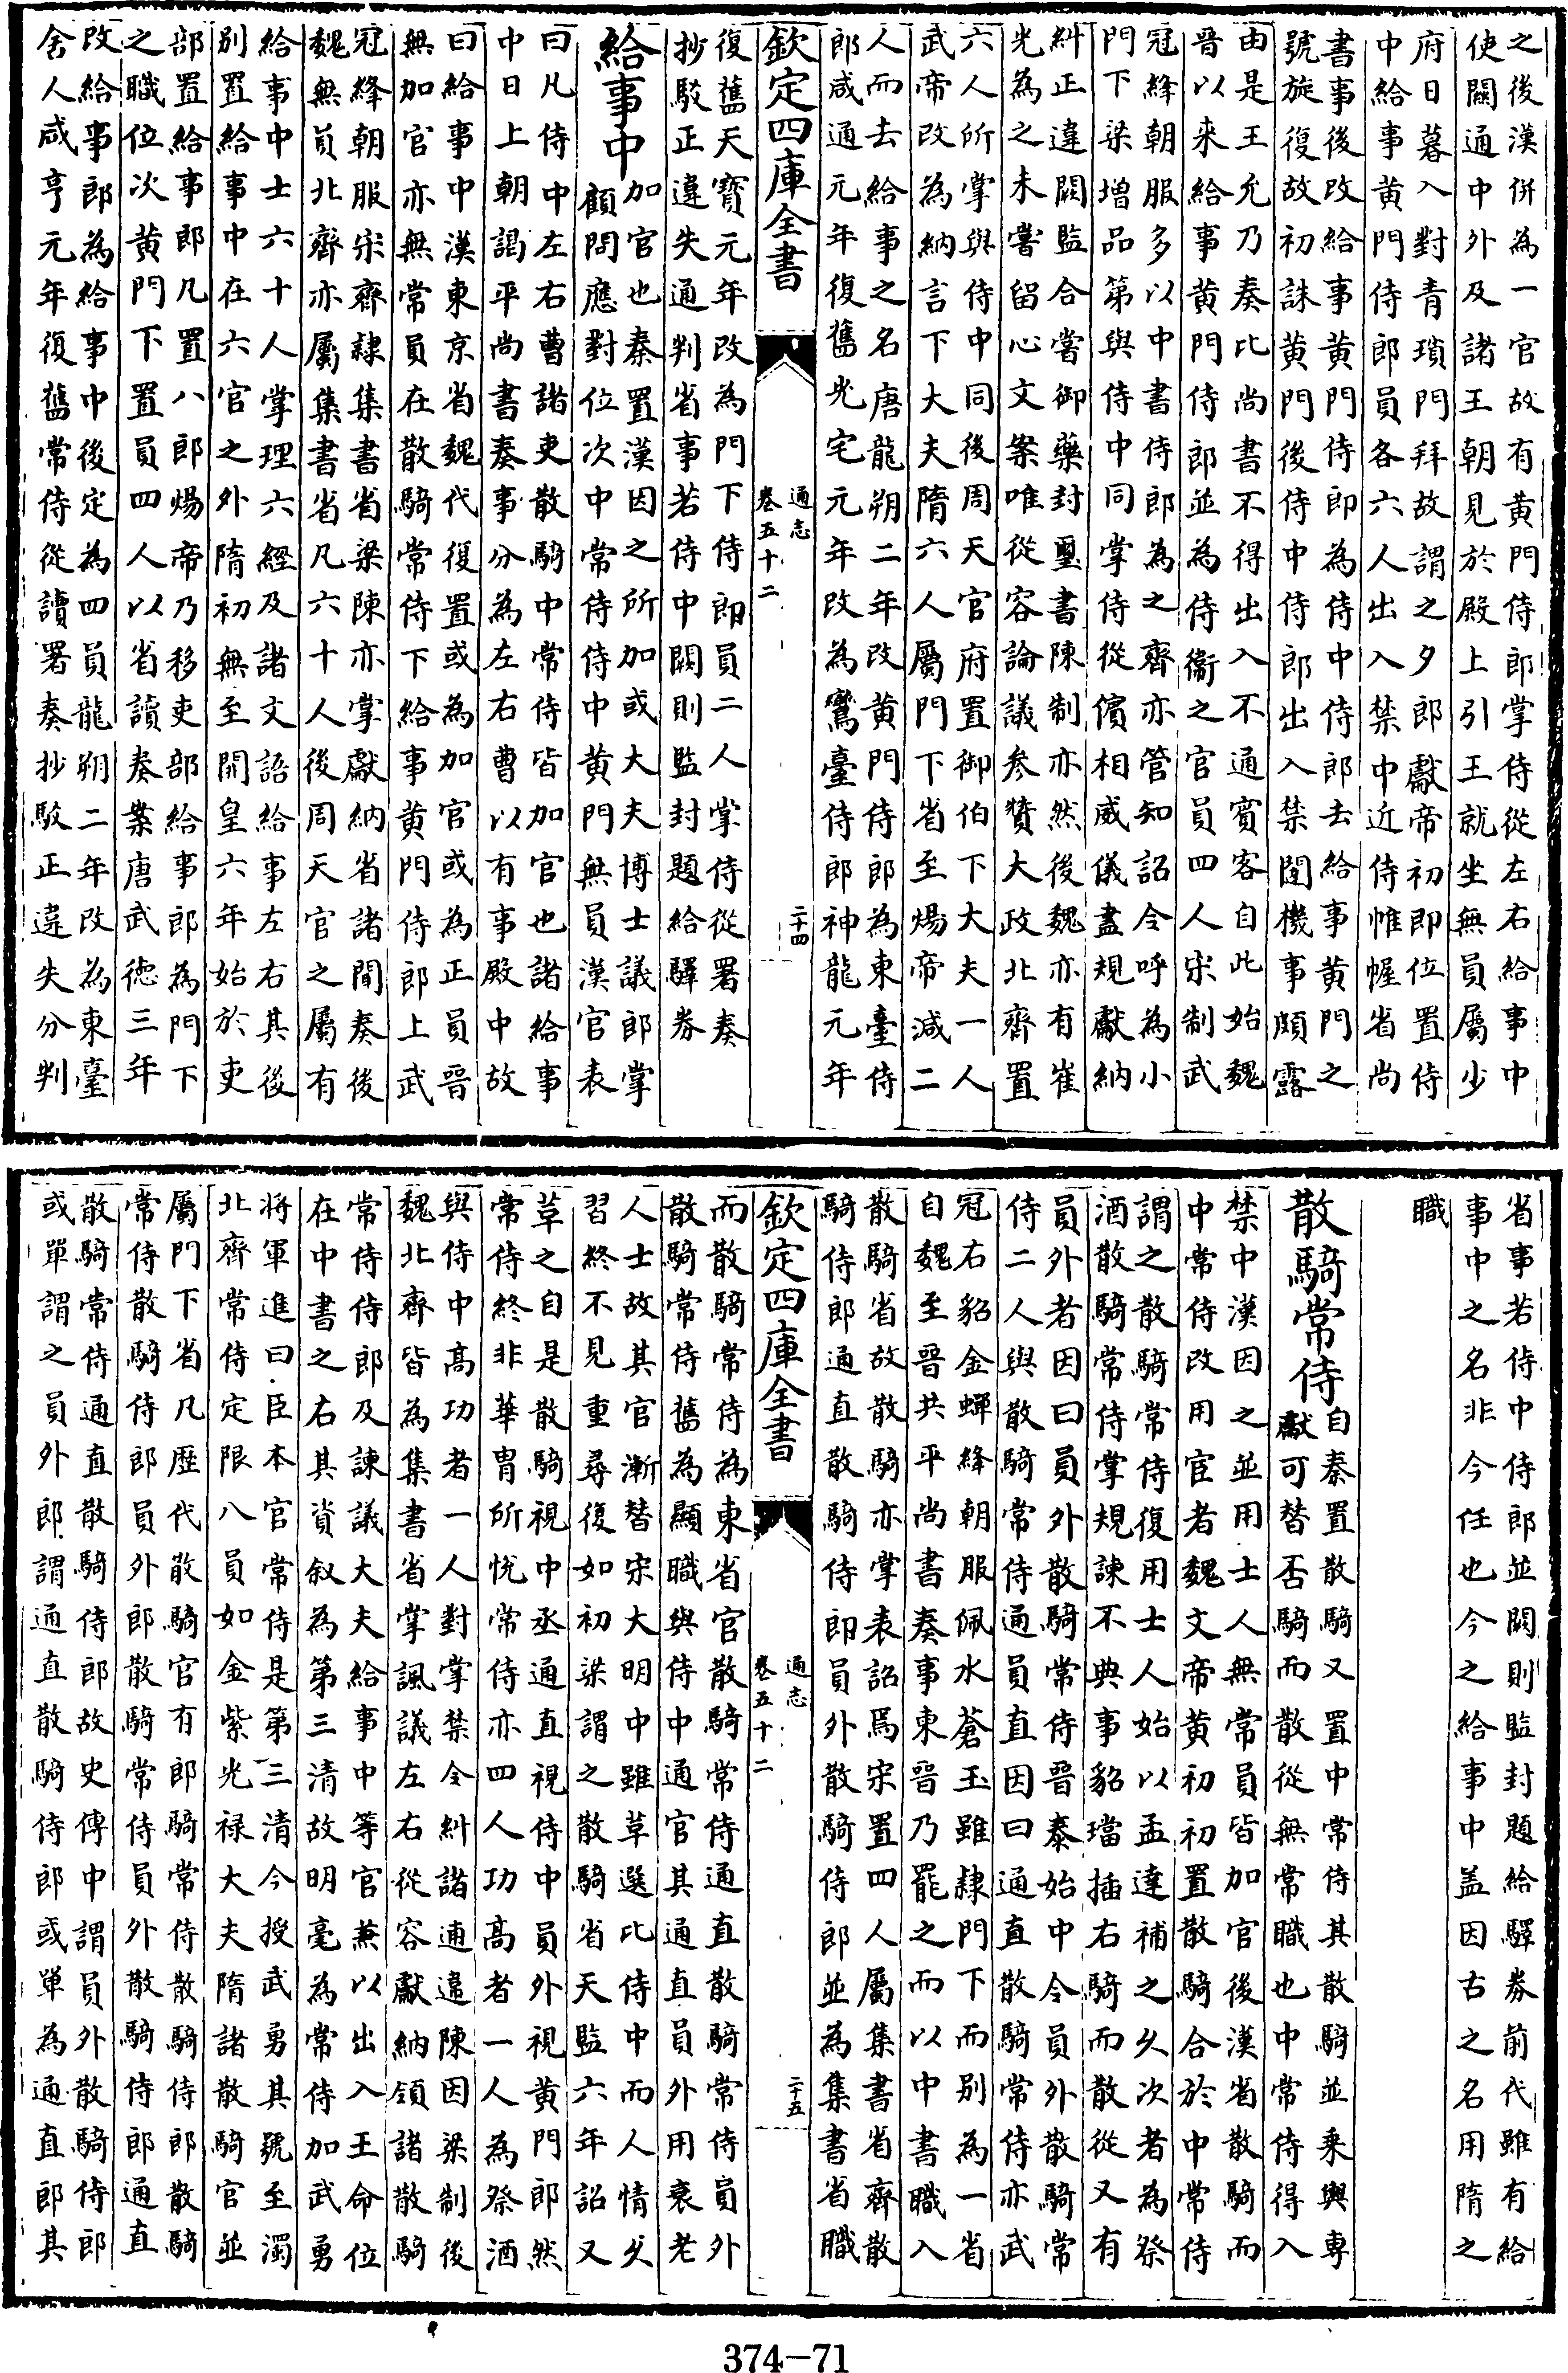 之後漢併為一官故有黄門侍郎掌侍從左右給事中
使關通中外及諸王朝見於殿上引王就坐無員屬少
府日暮入對青瑣門拜故謂之夕郎獻帝初即位置侍
中給事黄門侍郎員各六人出入禁中近侍帷幄省尚
書事後改給事黄門侍郎為侍中侍郎去給事黄門之
號旋復故初誅黄門後侍中侍郎出入禁闥機事頗露
由是王允乃奏比尚書不得出入不通賓客自此始魏
晉以来給事黄門侍郎並為侍衞之官員四人宋制武
冠絳朝服多以中書侍郎為之齊亦管知詔令呼為小
門下梁增品第與侍中同掌侍從儐相威儀盡規獻納
糾正違闕監合嘗御藥封璽書陳制亦然後魏亦有崔
光為之未嘗留心文案唯從容論議参贊大政北齊置
六人所掌與侍中同後周天官府置御伯下大夫一人
武帝改為納言下大夫隋六人屬門下省至煬帝減二
人而去給事之名唐龍朔二年改黄門侍郎為東臺侍
郎咸通元年復舊光宅元年改為鸞臺侍郎神龍元年
欽定四庫全書
通志
卷五十二
二十四
復舊天寶元年改為門下侍郎員二人掌侍從署奏
抄駮正違失通判省事若侍中闕則監封題給驛券
給事中
加官也秦置漢因之所加或大夫博士議郎掌
顧問應對位次中常侍侍中黄門無員漢官表
曰凡侍中左右曹諸吏散騎中常侍皆加官也諸給事
中日上朝謁平尚書奏事分為左右曹以有事殿中故
曰給事中漢東京省魏代復置或為加官或為正員晉
無加官亦無常員在散騎常侍下給事黄門侍郎上武
冠絳朝服宋齊隷集書省梁陳亦掌獻納省諸聞奏後
魏無員北齊亦屬集書省凡六十人後周天官之屬有
給事中士六十人掌理六經及諸文誥給事左右其後
別置給事中在六官之外隋初無至開皇六年始於吏
部置給事郎凡置八郎煬帝乃移吏部給事郎為門下
之職位次黄門下置員四人以省讀奏案唐武徳三年
改給事郎為給事中後定為四員龍朔二年改為東臺
舍人咸亨元年復舊常侍從讀署奏抄駮正違失分判
省事若侍中侍郎並闕則監封題給驛券前代雖有給
事中之名非今任也今之給事中盖因古之名用隋之
職
散騎常侍
自秦置散騎又置中常侍其散騎並乗輿專
獻可替否騎而散從無常職也中常侍得入
禁中漢因之並用士人無常員皆加官後漢省散騎而
中常侍改用宦者魏文帝黄初初置散騎合於中常侍
謂之散騎常侍復用士人始以孟達補之久次者為祭
酒散騎常侍掌規諫不典事貂璫插右騎而散從又有
員外者因曰員外散騎常侍晉泰始中令員外散騎常
侍二人與散騎常侍通員直因曰通直散騎常侍亦武
冠右貂金蟬絳朝服佩水蒼玉雖隷門下而别為一省
自魏至晉共平尚書奏事東晉乃罷之而以中書職入
散騎省故散騎亦掌表詔焉宋置四人屬集書省齊散
騎侍郎通直散騎侍郎員外散騎侍郎並為集書省職
欽定四庫全書
通志
卷五十二
二十五
而散騎常侍為東省官散騎常侍通直散騎常侍員外
散騎常侍舊為顯職與侍中通官其通直員外用衰老
人士故其官漸替宋大明中雖草選比侍中而人情久
習終不見重尋復如初梁謂之散騎省天監六年詔又
草之自是散騎視中丞通直視侍中員外視黄門郎然
常侍終非華胄所悅常侍亦四人功高者一人為祭酒
與侍中高功者一人對掌禁令糾諸逋違陳因梁制後
魏北齊皆為集書省掌諷議左右從容獻納領諸散騎
常侍侍郎及諫議大夫給事中等官兼以出入王命位
在中書之右其資叙為第三清故明亳為常侍加武勇
将軍進曰臣本官常侍是第三清今授武勇其號至濁
北齊常侍定限八員如金紫光禄大夫隋諸散騎官並
屬門下省凡歴代散騎官有郎騎常侍散騎侍郎散騎
常侍散騎侍郎員外郎散騎常侍員外散騎侍郎通直
散騎常侍通直散騎侍郎故史傳中謂員外散騎侍郎
或單謂之員外郎謂通直散騎侍郎或單為通直郎其
374-71